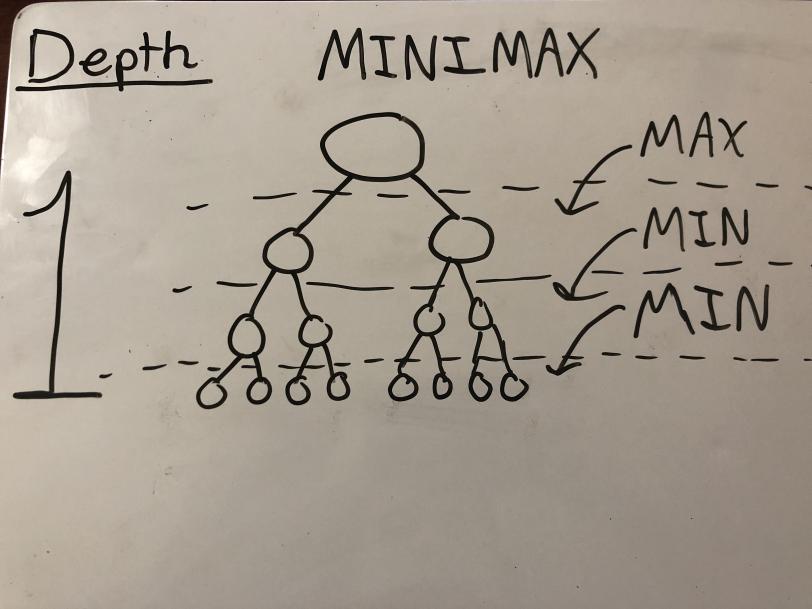 Depth MINIMAX
MAX
MIN
MIN
1